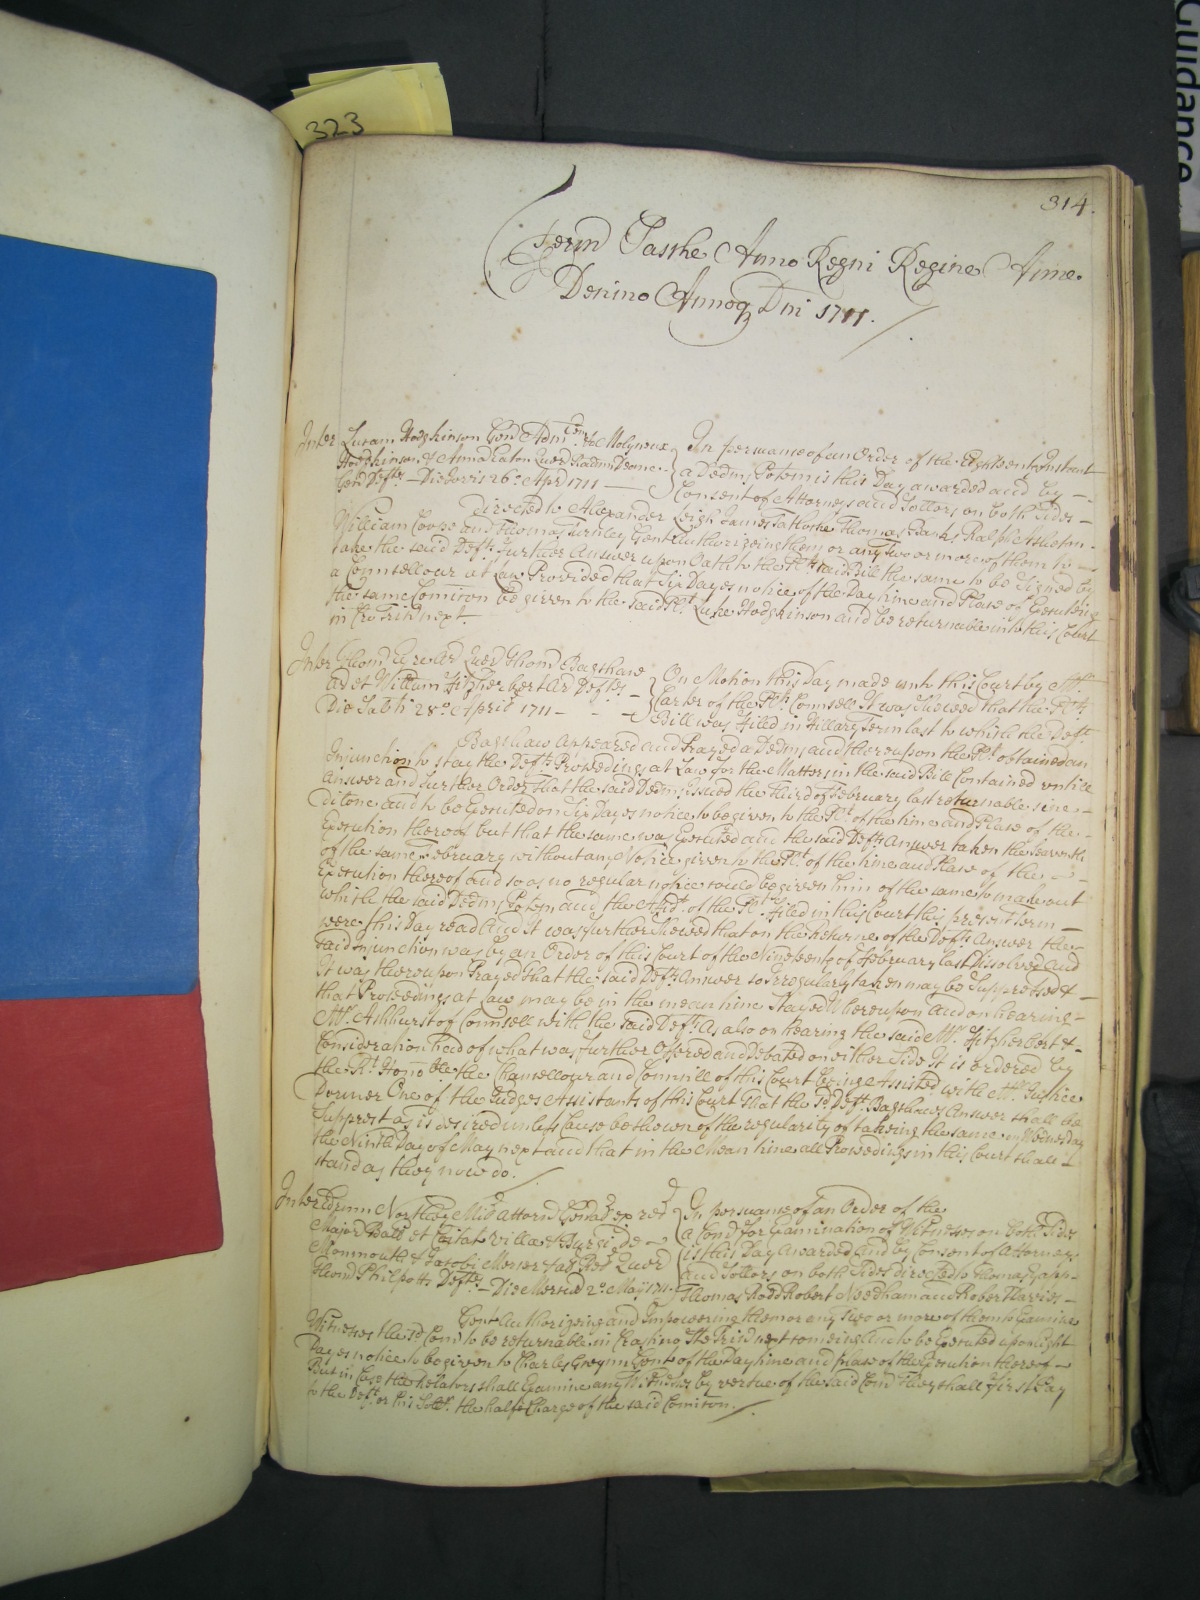 Guidance
323
314.
Termino Pasche Anno Regni Regine Anne
Decimo Annoq Dni 1711.
Inter Lucam Hodgkinson Gen Adm Molyneux
Hodgkinson & Anna Eaton Quer
Gen Defts – Die Jovis 26° April 1711 –
In persuance of an Order of the Eighteenth Instant
a Dedm Potem is this Day awarded and by –
Consent of Attorneys and Sollrs on both Sides –
Directed to Alexander Leigh James Thomas Banks Ralph Assheton
William Coope and Thomas Gent Authorizeing them or any Two or more of them to
take the said Defts further Answer upon Oath to the Plts said Bill the same to be Signed by
a Counsellour at Law Provided that Six Dayes notice of the Day time and Place of Executing
the same Comicon be given to the said Plt Luke Hodgkinson and be returnable into this Court
in next.
Inter Thom Ar Quer Thom Bagshaw
ar et Willum Fitzherbert Ar Defts –
Die Sabti 28° Aprilis 1711 – – –
On Motion this Day made unto this Court by Mr.
Carter of the Plts Counsell It was Shewed that the Plts
Bill was Filed in Hillary Term last to which the Deft
Bagshaw Appeared and Prayed a Dedm and thereupon the Plt obtained an
Injunction to stay the Defts Proceedings at Law for the Matters in the said Bill Contained untill
Answer and further Order That the said Dedm Issued the third of February last returnable sine –
Dilone and to be Executed on Six Dayes notice to be given to the Plt of the time and Place of the –
Execution thereof but that the same was Executed and the said Defts Answer taken the Seaventh
of the same February without any Notice given to the Plt of the time and Place of the –
Execution thereof and so as no regular notice could be given him of the same to make out
which the said Dedm Potem and the Affidt of the Plt filed in this Court this present Term –
were this Day read And It was further Shewed that on the Returne of the Defts Answer the –
said Injunction was by an Order of this Court of the Nineteenth of February last Dissolved and
It was thereupon Prayed that the said Defts Answer so Irregularly taken may be Suppressed &
that Proceedings at Law may be in the mean time Stayed Whereupon and on hearing –
Mr. Ashhurst of Counsell with the said Defts As also on hearing the said Mr. Fitzherbert &
Consideration had of what was further Offered and Debated on either Side It is ordered by
the Rt. Honoble the Chancellour and Councill of this Court being Assisted with Mr. Justice
Dormer One of the Judges Assistants of this Court That the sd Deft Bagshaws Answer shall be
Supprest as is desired unless Cause be shown of the regularity of takeing the same on Wednesday
the Ninth Day of May next and that in the Mean time all Proceedings in this Court shall
stand as they now do.
Inter Edrum Northey Mil Attorn General ex rel
Major Ball et Ville & Burgi de
Monmouth & Jacobi Quer
Thom Philpotts Defts – Die Mercurii 2° Maij 1711
In persuance of an Order of the
a Comn for Examination of Witnesses on both Sides
is this Day Awarded and by Consent of Attorneys
and Sollrs on both Sides directed to Thomas
Thomas Rodd Robert Needham and Robert Harries –
Gent Authorizing and Impowering them or any Two or more of them to Examine
Witnesses the sd Comn to be returnable in Crastino next comeing And to be Executed upon Eight
Dayes notice to be given to Charles Gwynn Gent of the Day time and place of the Execution thereof –
But in Case the Relators shall Examine any Witnesses by vertue of the said Comn they shall first Pay
to the Deft or his Sollr. the halfe Charge of the said Comicon.